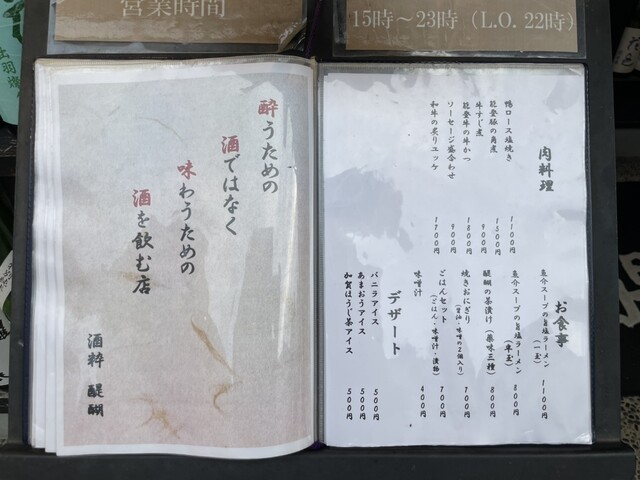 営業時間
15時～23時（L.O. 22時）
酔うための
酒ではなく
味わうための
酒を飲む店
酒粋 醍醐
肉料理
鴨ロース塩焼き 1100円
能登豚の角煮 1500円
牛すじ煮 900円
能登牛の牛かつ 1800円
ソーセージ盛合わせ 900円
和牛の炙りユッケ 1700円
お食事
魚介スープの旨塩ラーメン（一玉） 1100円
魚介スープの旨塩ラーメン（半玉） 800円
醍醐の茶漬け（薬味三種） 800円
焼きおにぎり 700円
ごはんセット（ごはん・味噌汁・漬物） 700円
味噌汁 400円
デザート
バニラアイス 500円
あまおうアイス 500円
加賀ほうじ茶アイス 500円